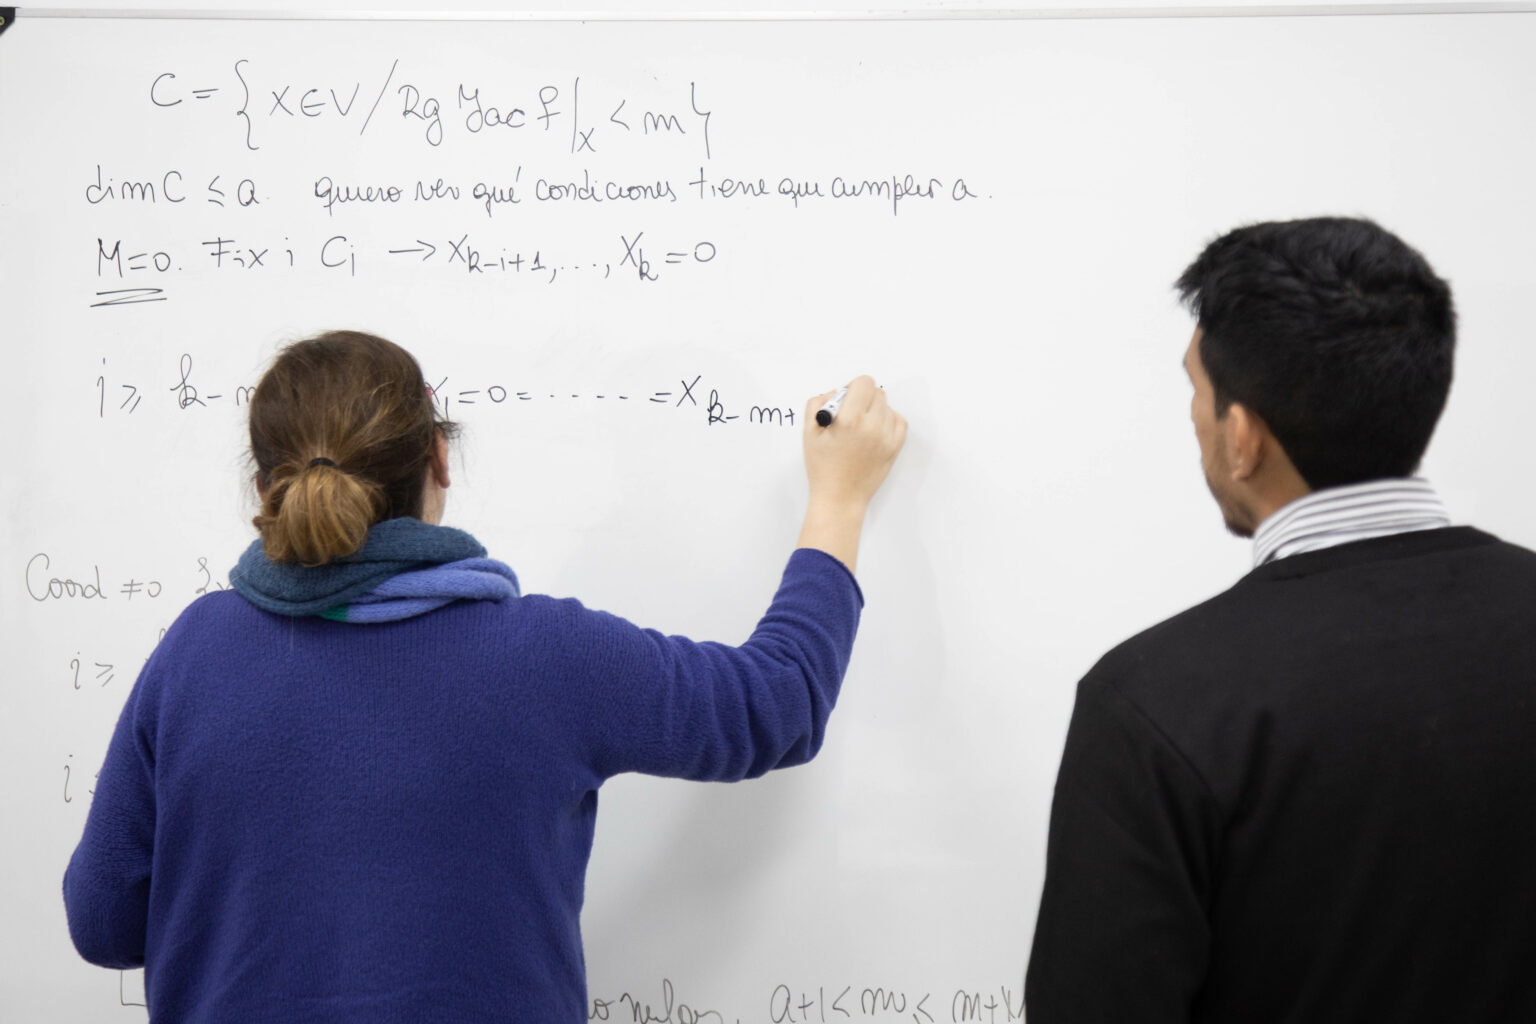 C = { x ∈ V / Rg Jac f |x < m }
dim C ≤ a. quiero ver qué condiciones tiene que cumplir a.
M=0. Fix i Ci → x_{k-i+1}, ..., x_k = 0
i ≥ k - m x_1 = 0 = ..... = x_{k-m+
Coord ≠ 0 {x
i ≥
i
a+1 < m